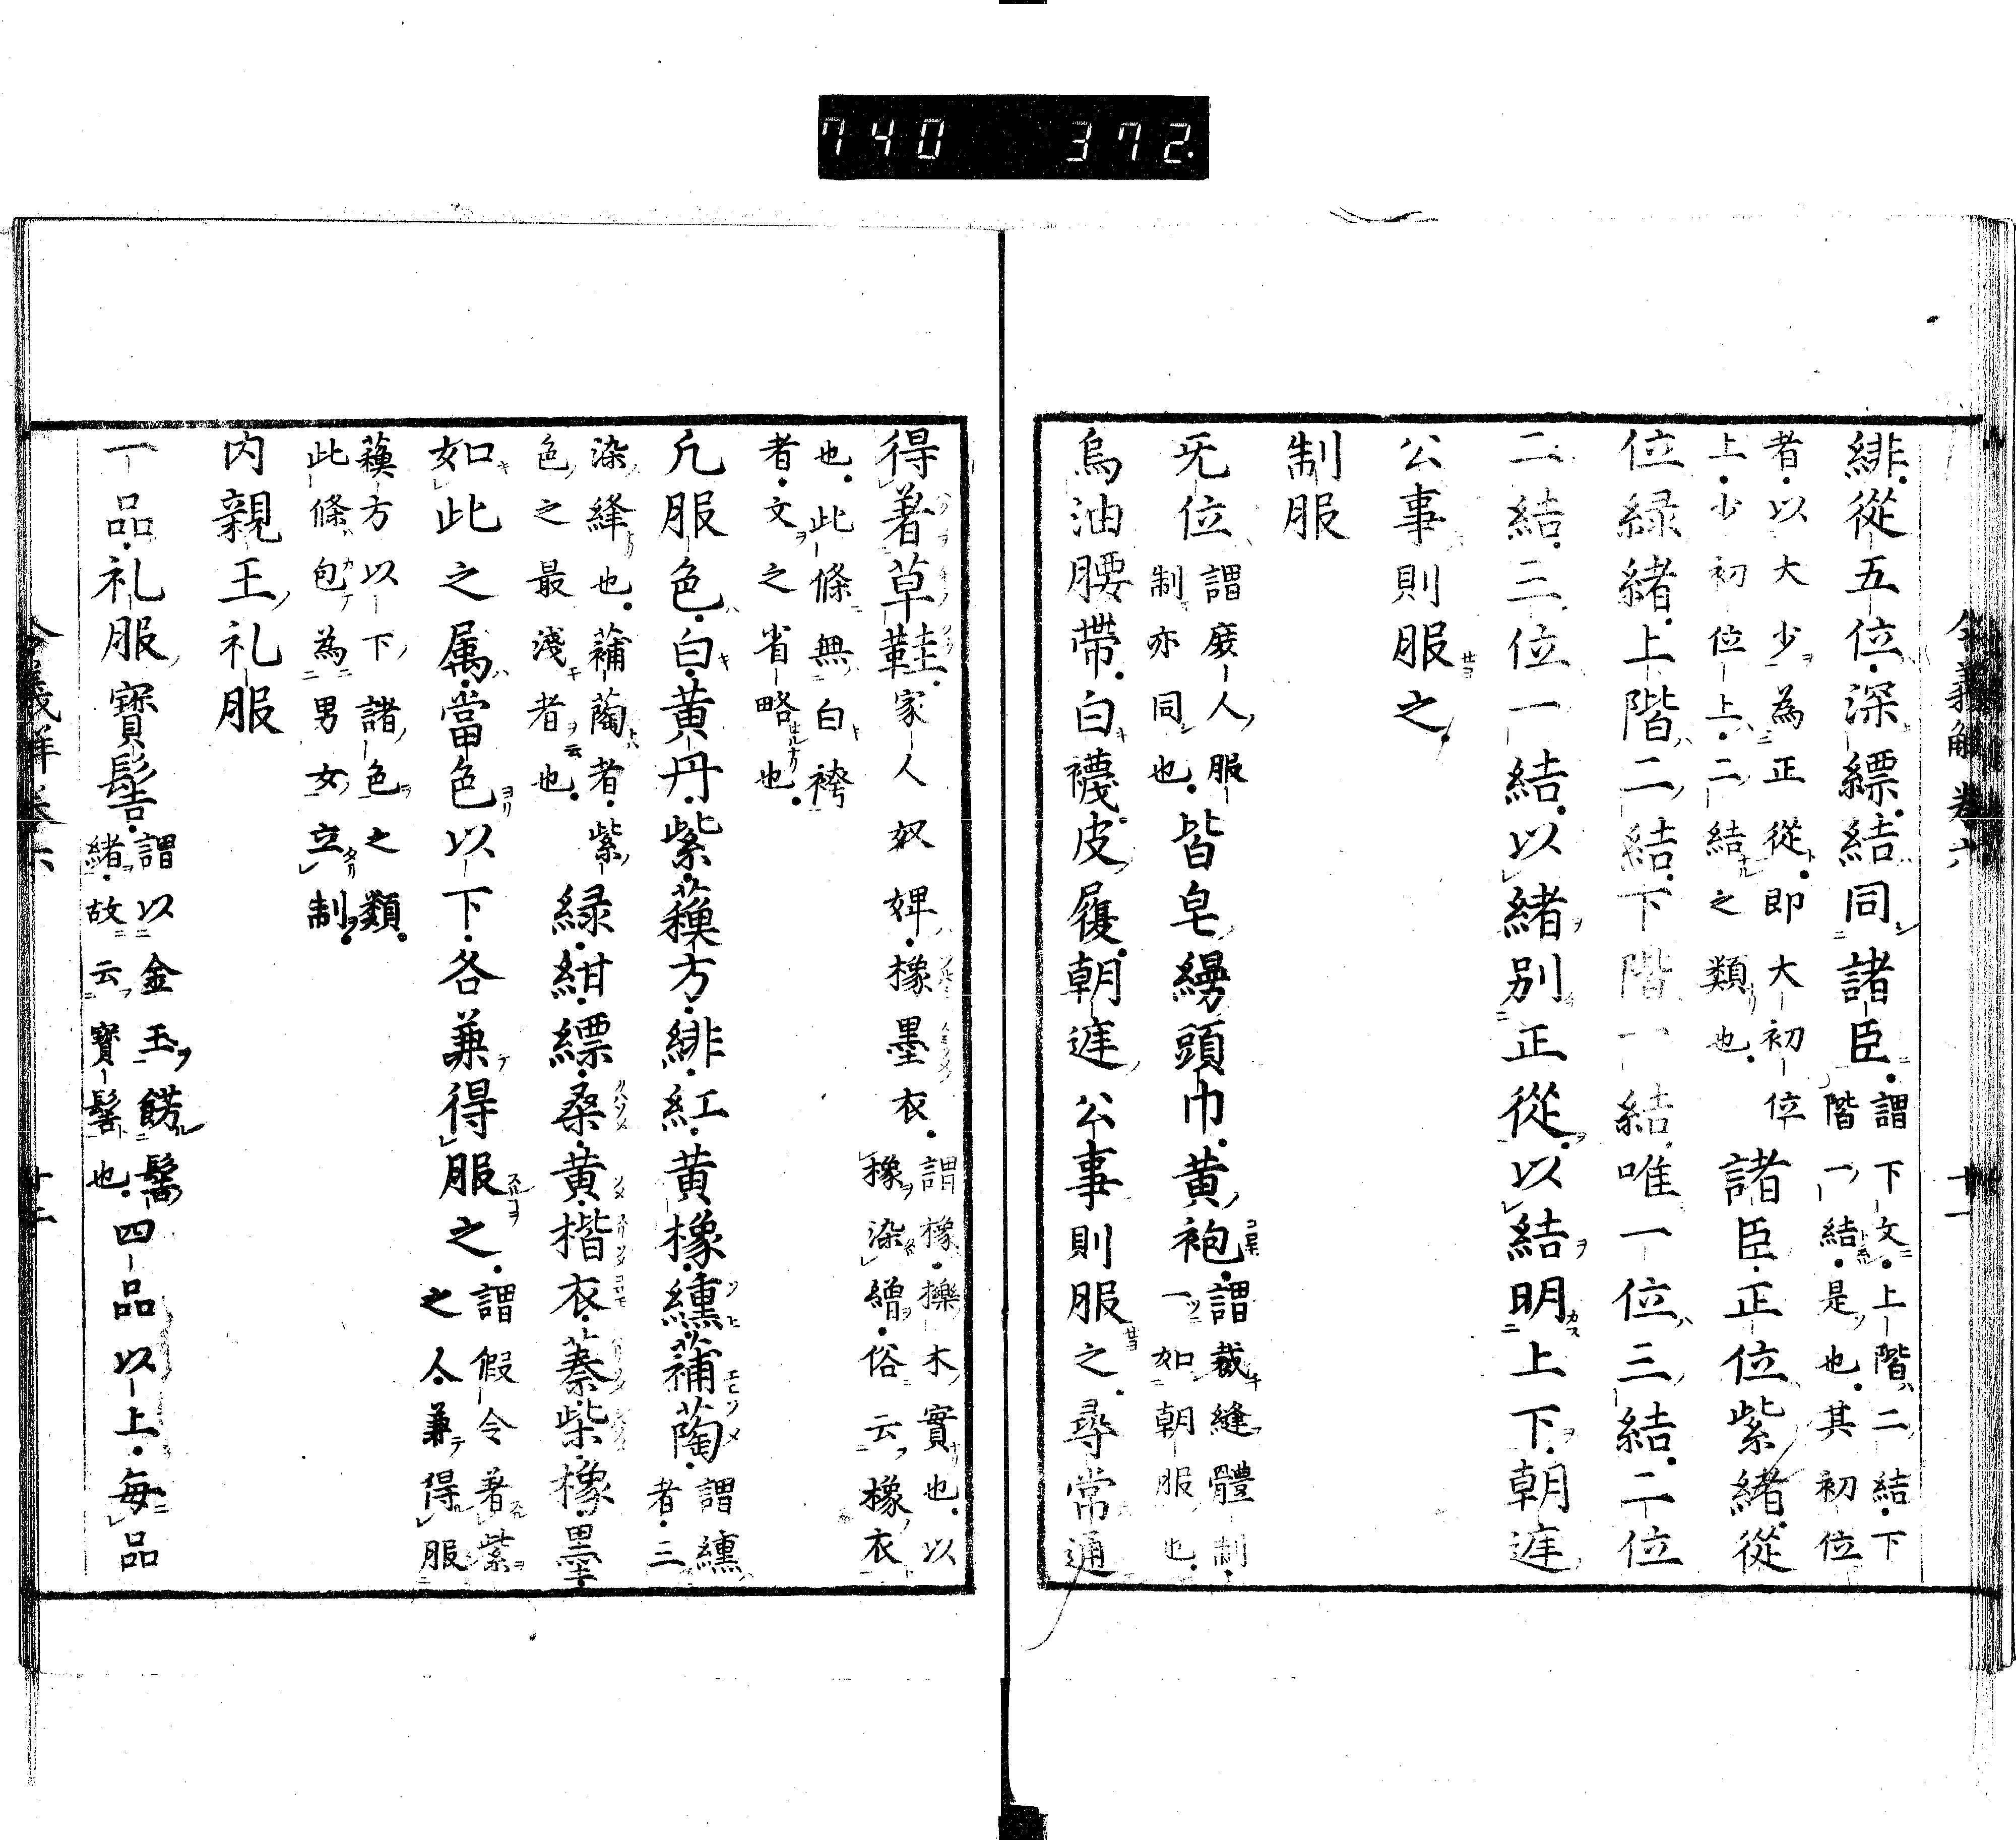 740 372
令義解卷六 十一
緋從五位深縹結同諸臣謂下文上階二結下
階一結是也其初位
者以大少為正從即大初位
上少初位上二結之類也諸臣正位紫緒從
位緑緒上階二結下階一結唯一位三結二位
二結三位一結以緒別正從以結明上下朝𨑳
公事則服之
制服
无位謂庶人服
制亦同也皆皂縵頭巾黄袍謂裁縫體制
一如朝服也
烏油腰帶白襪皮履朝𨑳公事則服之尋常通
得著草鞋家人奴婢橡墨衣謂橡櫟木實也以
橡染繒俗云橡衣
也此條無白袴
者文之省略也
凡服色白黄丹紫蘓方緋紅黄橡纁蒲萄謂纁
者三
染絳也蒲萄者紫
色之最淺者也緑紺縹桑黄楷衣蓁柴橡墨
如此之属當色以下各兼得服之謂假令著紫
之人兼得服
蘓方以下諸色之類
此條包為男女立制
内親王礼服
一品礼服寳髻謂以金玉餝髻
緒故云寳髻也四品以上每品
令義解卷六 十二